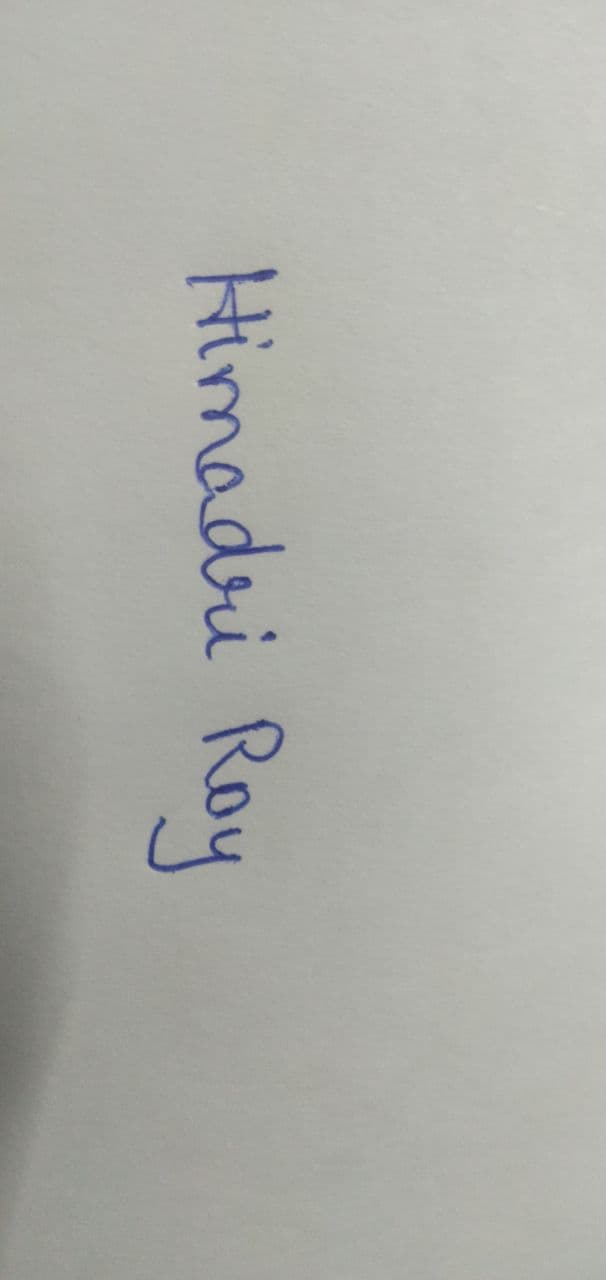 Himadri Roy